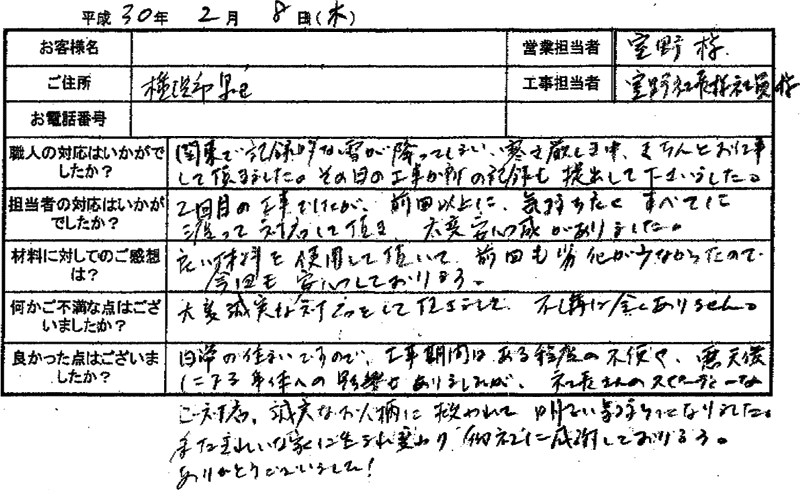 平成 30年 2月 8日(木)
お客様名 営業担当者 室野様
ご住所 横浜市 工事担当者 室野社長様社員様
お電話番号
職人の対応はいかがでしたか? 関東で記録的な雪が降ってしまい、寒さ厳しき中、きちんとお仕事
して頂きました。その日の工事か所の記録も提出して下さいました。
担当者の対応はいかがでしたか? 2回目の工事でしたが、前回以上に、気持ちよく すべてに
渡って対応して頂き、大変安心感がありました。
材料に対してのご感想は? 良い材料を使用して頂いて、前回も劣化が少なかったので
今回も安心しております。
何かご不満な点はございましたか? 大変誠実な対応をして頂きまして、不満は全くありません。
良かった点はございましたか? 日常の住まいですので、工事期間はある程度の不便や、悪天候
による身体への影響もありましたが、社長さんのスピーディーな
ご対応、誠実なお人柄に救われて 明るい気持ちになりました。
またきれいな家に生まれ変わり 御社に感謝しております。
ありがとうございました!